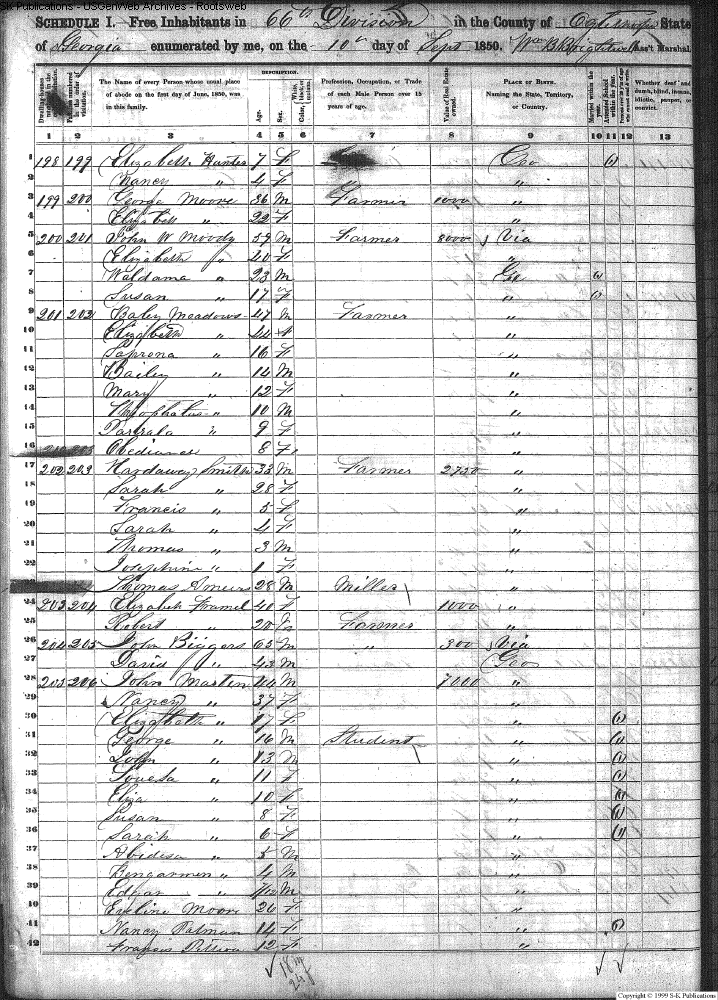 S-K Publications - USGenWeb Archives - Rootsweb
SCHEDULE I. Free Inhabitants in 66th Division in the County of Oglethorpe State
of Georgia enumerated by me, on the 10th day of Sept 1850. Ass't Marshal.
DESCRIPTION.
The Name of every Person whose usual place of abode on the first day of June, 1850, was in this family.
Age. Sex. Color
Profession, Occupation, or Trade of each Male Person over 15 years of age.
Value of Real Estate owned.
PLACE OF BIRTH. Naming the State, Territory, or Country.
Married within the year. Attended School within the year.
Whether deaf and dumb, blind, insane, idiotic, pauper, or convict.
1 2 3 4 5 6 7 8 9 10 11 12 13
1 198 199 Elizabeth Hunter 7 F Geo (1)
2 Nancy " 4 F "
3 199 200 George Moore 36 M Farmer 1000 "
4 Elizabeth " 22 F "
5 200 201 John W Moody 59 M Farmer 8000 Via
6 Elizabeth " 40 F "
7 Waldama " 23 M Ge
8 Susan " 17 F "
9 201 202 Baley Meadows 47 M Farmer "
10 Elizabeth " 44 F "
11 Saprena " 16 F "
12 Bailey " 14 M "
13 Mary " 12 F "
14 " 10 M "
15 " 9 F "
16 Obediance 8 F "
17 202 203 Hardaway Smith 33 M Farmer 2750 "
18 Sarah " 28 F "
19 Francis " 5 F "
20 Sarah " 4 F "
21 Thomas " 3 M "
22 Josephine " 1 F "
23 Thomas 28 M Miller "
24 203 204 Elizabeth 40 F 1000 "
25 Robert " Farmer "
26 204 205 John Biggers 65 M " 300 Via
27 David " 42 M Geo
28 205 206 John Marten 44 M 7000 "
29 Nancy " 37 F "
30 Elizabeth " 17 F " (1)
31 George " 16 M Student " (1)
32 John " 13 M " (1)
33 " 11 F " (1)
34 Eliza " 10 F " (1)
35 Susan " 8 F " (1)
36 Sarah " 6 F " (1)
37 " 5 M "
38 Bengarmen " 4 M "
39 Edgar " M "
40 Eveline Moore 26 F "
41 Nancy Patman 14 F " (1)
42 Francis 12 F "
18 m
24 f
Copyright © 1999 S-K Publications